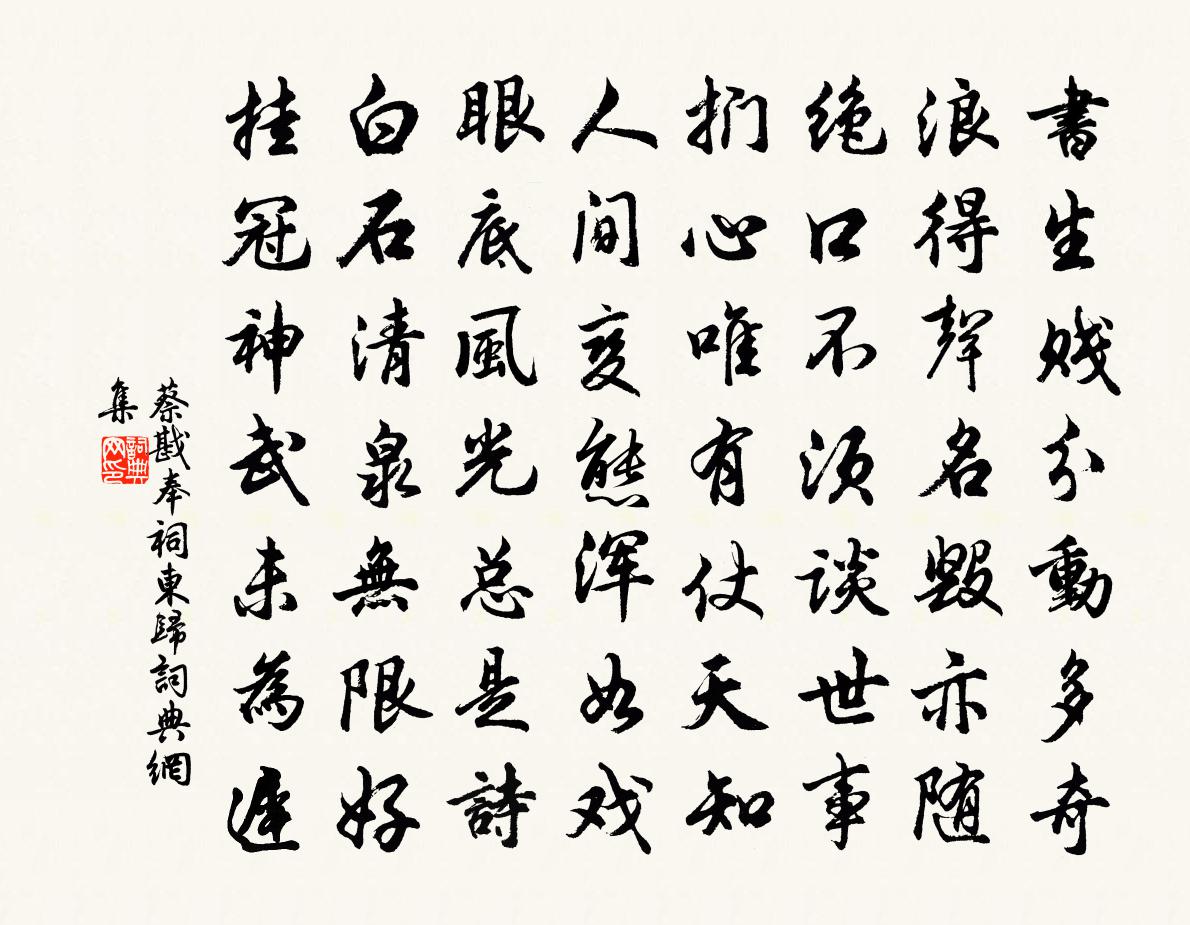 書生賤分動多奇
浪得聲名毀亦随
绝口不須談世事
捫心唯有仗天知
人间变態渾如戏
眼底風光总是詩
白石清泉無限好
挂冠神武未為遲
蔡戡奉祠東歸詞典網
集
詞典网印